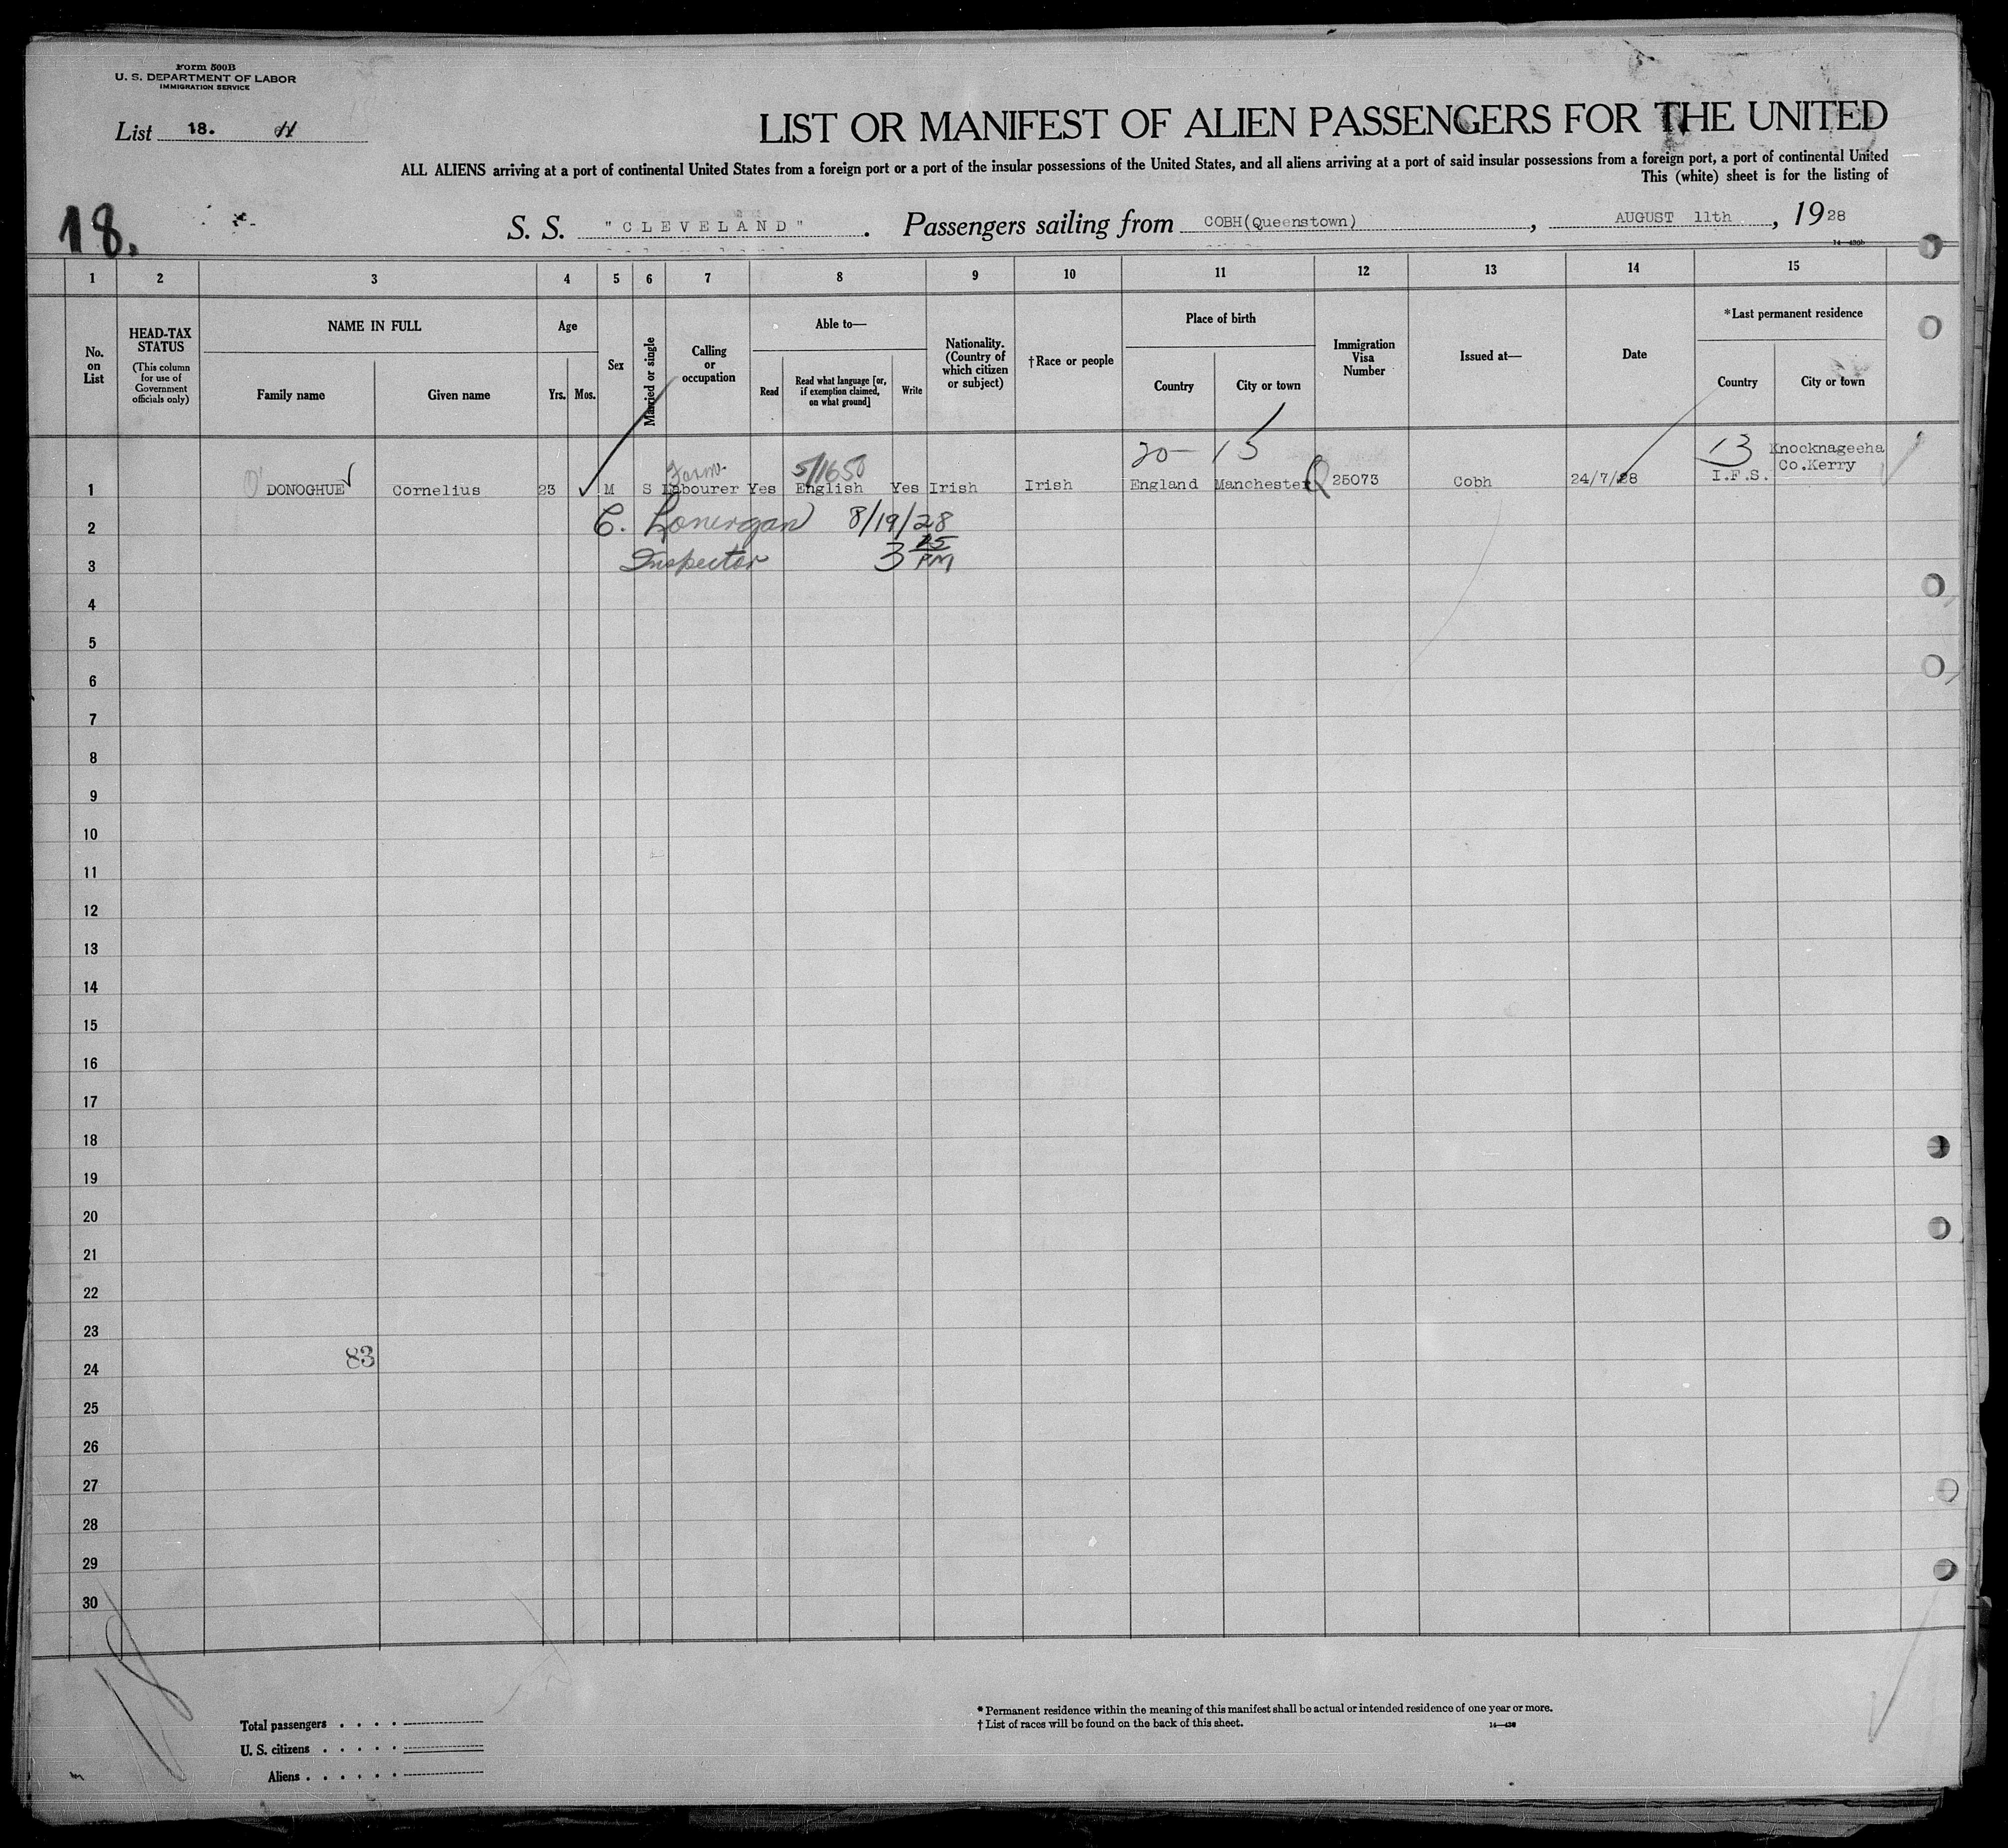 Form 500B
U. S. DEPARTMENT OF LABOR
IMMIGRATION SERVICE
List 18.
LIST OR MANIFEST OF ALIEN PASSENGERS FOR THE UNITED
ALL ALIENS arriving at a port of continental United States from a foreign port or a port of the insular possessions of the United States, and all aliens arriving at a port of said insular possessions from a foreign port, a port of continental United
This (white) sheet is for the listing of
18.
S. S. "CLEVELAND". Passengers sailing from COBH(Queenstown), AUGUST 11th, 1928
1 2 3 4 5 6 7 8 9 10 11 12 13 14 15
No. on List
HEAD-TAX STATUS
(This column for use of Government officials only)
NAME IN FULL
Family name
Given name
Age
Yrs. Mos.
Sex
Married or single
Calling or occupation
Able to—
Read
Read what language [or, if exemption claimed, on what ground]
Write
Nationality. (Country of which citizen or subject)
†Race or people
Place of birth
Country
City or town
Immigration Visa Number
Issued at—
Date
*Last permanent residence
Country
City or town
20- 15 13 Knocknageeha
Farm 5/1650 Co.Kerry
1 O' DONOGHUE Cornelius 23 M S Labourer Yes English Yes Irish Irish England Manchester Q 25073 Cobh 24/7/28 I.F.S.
2 C. Lonergan 8/19/28
3 Inspector 3 25 PM
4
5
6
7
8
9
10
11
12
13
14
15
16
17
18
19
20
21
22
23
83
24
25
26
27
28
29
30
18
Total passengers . . . .
U. S. citizens . . . . .
Aliens . . . . . .
* Permanent residence within the meaning of this manifest shall be actual or intended residence of one year or more.
† List of races will be found on the back of this sheet.